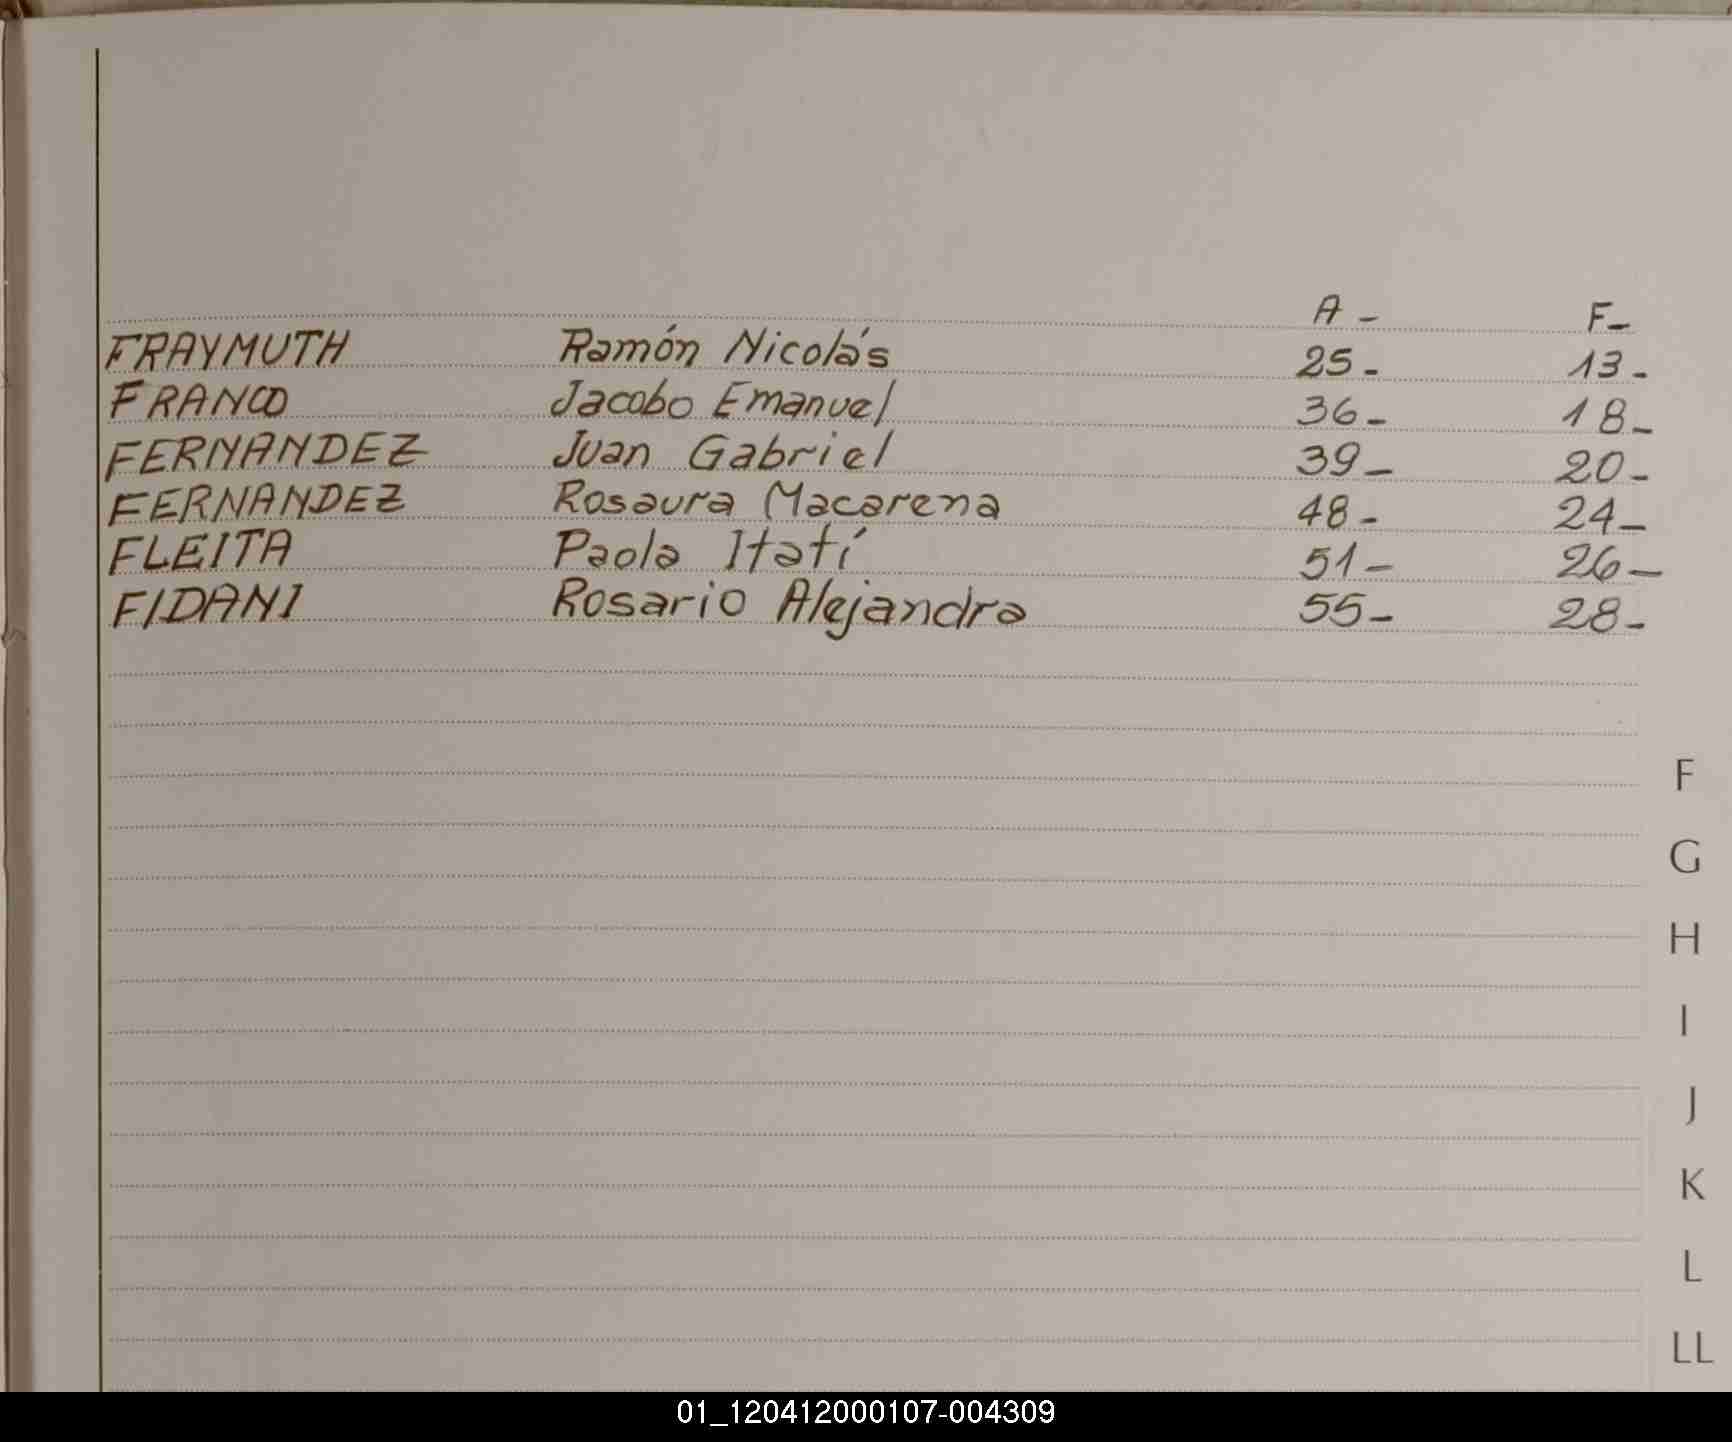 A - F-
FRAYMUTH Ramón Nicolás 25- 13-
FRANCO Jacobo Emanuel 36- 18-
FERNANDEZ Juan Gabriel 39- 20-
FERNANDEZ Rosaura Macarena 48- 24-
FLEITA Paola Itatí 51- 26-
FIDANI Rosario Alejandra 55- 28-
F
G
H
I
J
K
L
LL
01_120412000107-004309